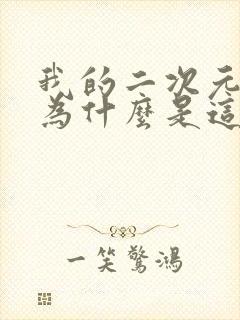 我的二次元
為什麼是這
一笑驚鴻